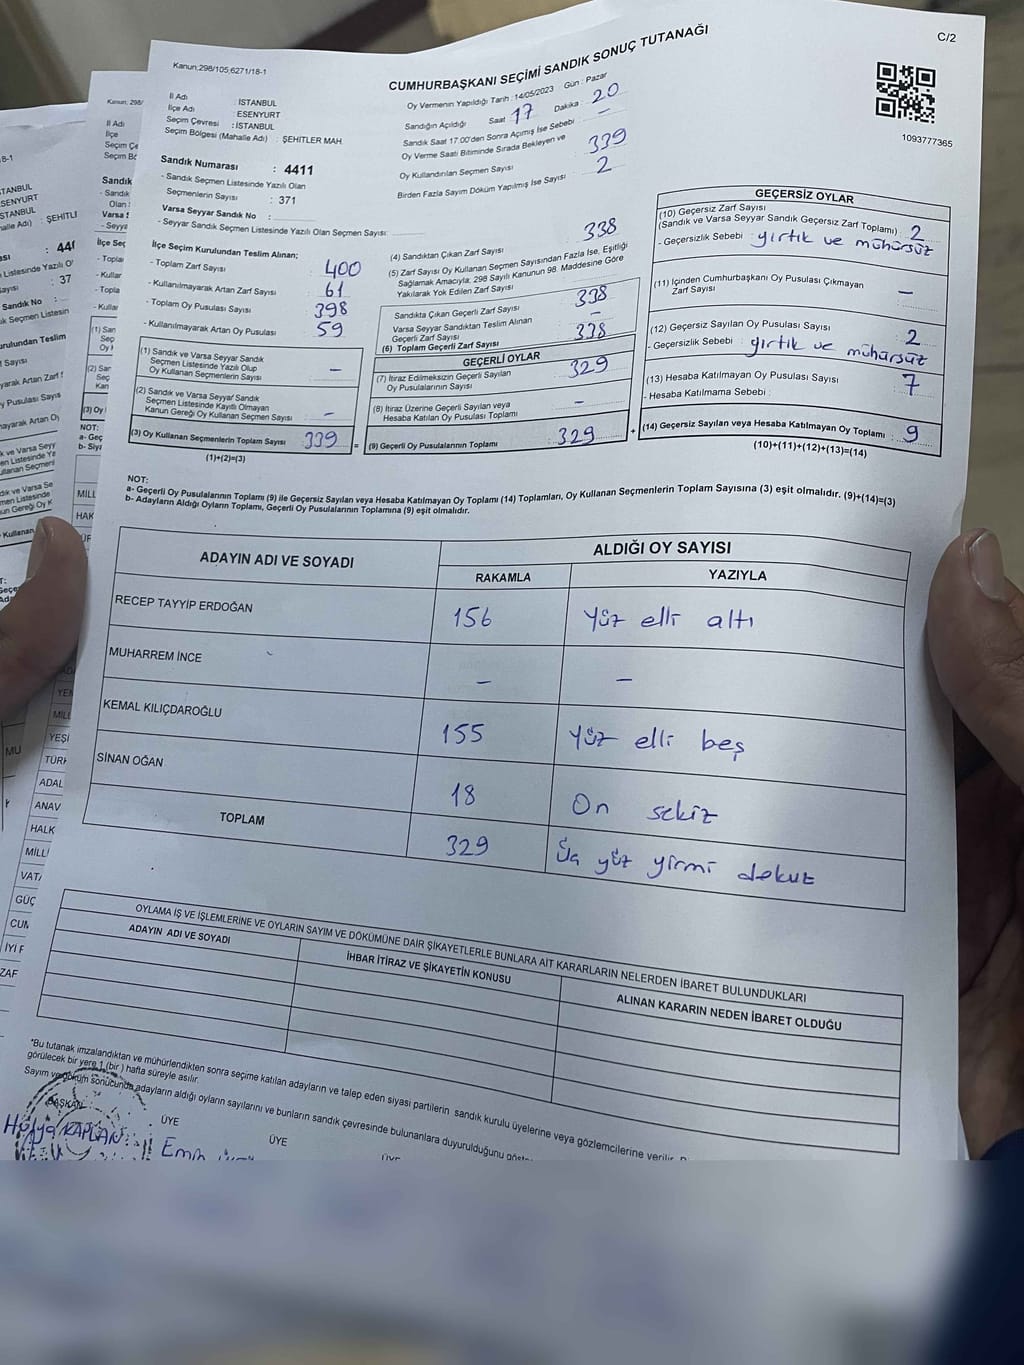 C/2
Kanun:298/105;6271/18-1
CUMHURBAŞKANI SEÇİMİ SANDIK SONUÇ TUTANAĞI
1093777365
İl Adı : İSTANBUL
İlçe Adı : ESENYURT
Seçim Çevresi : İSTANBUL
Seçim Bölgesi (Mahalle Adı) : ŞEHİTLER MAH.
Sandık Numarası : 4411
- Sandık Seçmen Listesinde Yazılı Olan
Seçmenlerin Sayısı : 371
Varsa Seyyar Sandık No :
- Seyyar Sandık Seçmen Listesinde Yazılı Olan Seçmen Sayısı:
Oy Vermenin Yapıldığı Tarih : 14/05/2023 Gün : Pazar
Sandığın Açıldığı Saat 17 Dakika : 20
Sandık Saat 17:00'den Sonra Açımış İse Sebebi –
Oy Verme Saati Bitiminde Sırada Bekleyen ve
Oy Kullandırılan Seçmen Sayısı 339
Birden Fazla Sayım Döküm Yapılmış İse Sayısı 2
İlçe Seçim Kurulundan Teslim Alınan;
- Toplam Zarf Sayısı : 400
- Kullanılmayarak Artan Zarf Sayısı : 61
- Toplam Oy Pusulası Sayısı : 398
- Kullanılmayarak Artan Oy Pusulası : 59
(1) Sandık ve Varsa Seyyar Sandık
Seçmen Listesinde Yazılı Olup
Oy Kullanan Seçmenlerin Sayısı –
(2) Sandık ve Varsa Seyyar Sandık
Seçmen Listesinde Kayıtlı Olmayan
Kanun Gereği Oy Kullanan Seçmen Sayısı –
(3) Oy Kullanan Seçmenlerin Toplam Sayısı 339 =
(1)+(2)=(3)
(4) Sandıktan Çıkan Zarf Sayısı 338
(5) Zarf Sayısı Oy Kullanan Seçmen Sayısından Fazla İse, Eşitliği
Sağlamak Amacıyla; 298 Sayılı Kanunun 98. Maddesine Göre
Yakılarak Yok Edilen Zarf Sayısı
Sandıkta Çıkan Geçerli Zarf Sayısı 338
Varsa Seyyar Sandıktan Teslim Alınan
Geçerli Zarf Sayısı –
(6) Toplam Geçerli Zarf Sayısı 338
GEÇERLİ OYLAR
(7) İtiraz Edilmeksizin Geçerli Sayılan
Oy Pusulalarının Sayısı 329
(8) İtiraz Üzerine Geçerli Sayılan veya
Hesaba Katılan Oy Pusulası Toplamı –
(9) Geçerli Oy Pusulalarının Toplamı : 329 +
GEÇERSİZ OYLAR
(10) Geçersiz Zarf Sayısı
(Sandık ve Varsa Seyyar Sandık Geçersiz Zarf Toplamı) : 2
- Geçersizlik Sebebi : yırtık ve mühürsüz
(11) İçinden Cumhurbaşkanı Oy Pusulası Çıkmayan
Zarf Sayısı –
(12) Geçersiz Sayılan Oy Pusulası Sayısı 2
- Geçersizlik Sebebi : yırtık ve mühürsüz
(13) Hesaba Katılmayan Oy Pusulası Sayısı 7
- Hesaba Katılmama Sebebi :
(14) Geçersiz Sayılan veya Hesaba Katılmayan Oy Toplamı : 9
(10)+(11)+(12)+(13)=(14)
NOT:
a- Geçerli Oy Pusulalarının Toplamı (9) ile Geçersiz Sayılan veya Hesaba Katılmayan Oy Toplamı (14) Toplamları, Oy Kullanan Seçmenlerin Toplam Sayısına (3) eşit olmalıdır. (9)+(14)=(3)
b- Adayların Aldığı Oyların Toplamı, Geçerli Oy Pusulalarının Toplamına (9) eşit olmalıdır.
ADAYIN ADI VE SOYADI ALDIĞI OY SAYISI
RAKAMLA YAZIYLA
RECEP TAYYİP ERDOĞAN 156 Yüz elli altı
MUHARREM İNCE – –
KEMAL KILIÇDAROĞLU 155 Yüz elli beş
SİNAN OĞAN 18 On sekiz
TOPLAM 329 Üç yüz yirmi dokuz
OYLAMA İŞ VE İŞLEMLERİNE VE OYLARIN SAYIM VE DÖKÜMÜNE DAİR ŞİKAYETLERLE BUNLARA AİT KARARLARIN NELERDEN İBARET BULUNDUKLARI
ADAYIN ADI VE SOYADI İHBAR İTİRAZ VE ŞİKAYETİN KONUSU ALINAN KARARIN NEDEN İBARET OLDUĞU
*Bu tutanak imzalandıktan ve mühürlendikten sonra seçime katılan adayların ve talep eden siyasi partilerin sandık kurulu üyelerine veya gözlemcilerine verilir.
görülecek bir yere 1 (bir) hafta süreyle asılır.
Sayım ve döküm sonucunda adayların aldığı oyların sayılarını ve bunların sandık çevresinde bulunanlara duyurulduğunu
BAŞKAN ÜYE ÜYE
Hülya KAPLAN Emin